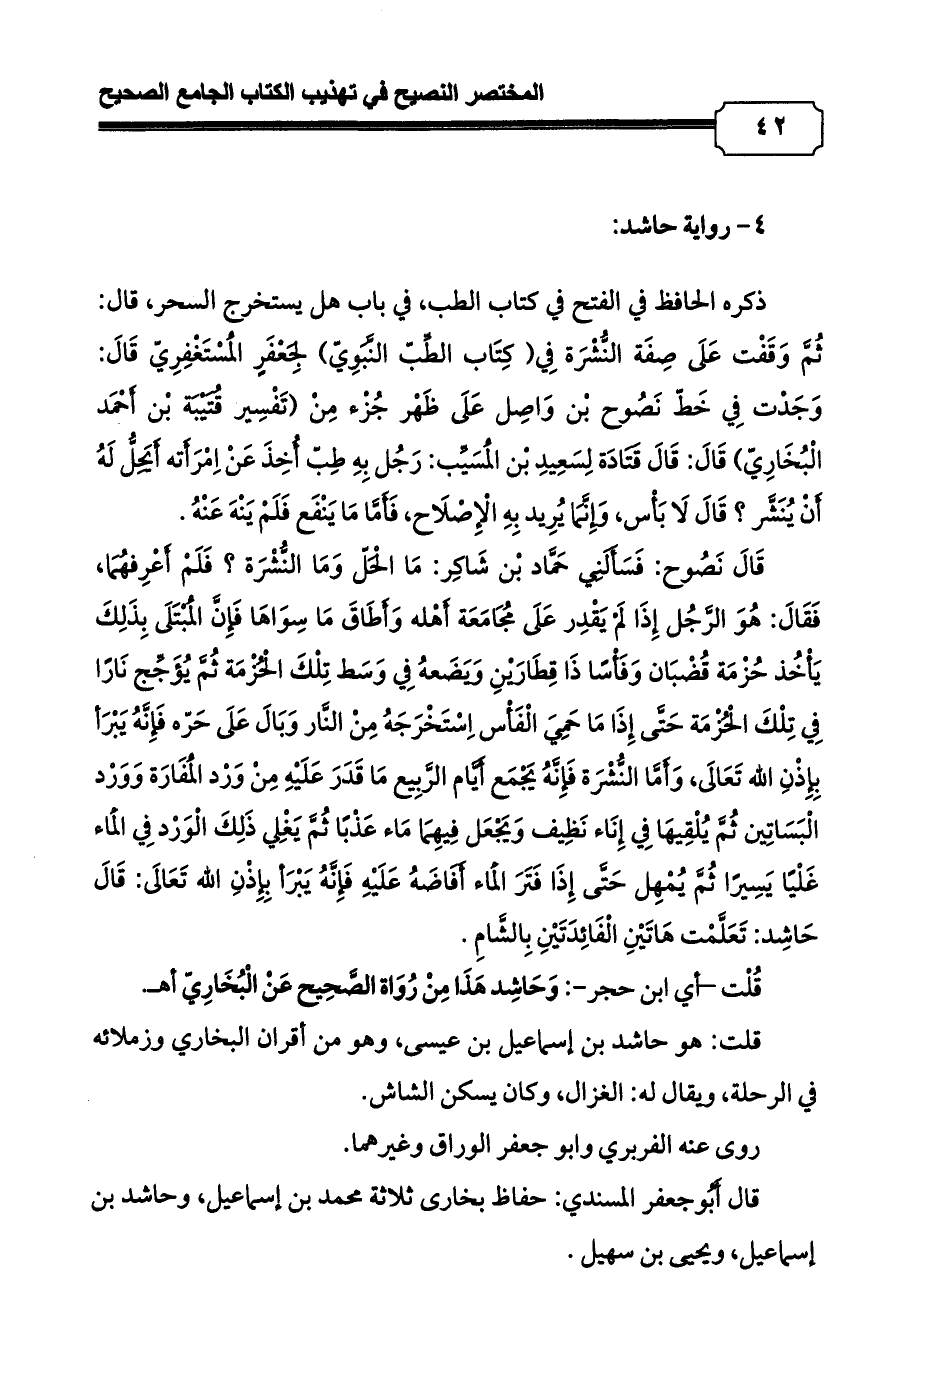 المختصر النصيح في تهذيب الكتاب الجامع الصحيح
٤٢
٤- رواية حاشد:
ذكره الحافظ في الفتح في كتاب الطب، في باب هل يستخرج السحر، قال:
ثُمَّ وَقَفْت عَلَى صِفَة النُّشْرَة فِي( كِتَاب الطِّبّ النَّبَوِيّ) لِجَعْفَرٍ الْمُسْتَغْفِرِيّ قَالَ:
وَجَدْت فِي خَطّ نَصُوح بْن وَاصِل عَلَى ظَهْر جُزْء مِنْ (تَفْسِير قُتَيْبَة بْن أَحْمَد
الْبُخَارِيّ) قَالَ: قَالَ قَتَادَة لِسَعِيدِ بْن الْمُسَيِّب: رَجُل بِهِ طِبّ أُخِذَ عَنْ اِمْرَأَته أَيَحِلُّ لَهُ
أَنْ يُنَشَّر ؟ قَالَ لَا بَأْس، وَإِنَّمَا يُرِيد بِهِ الْإِصْلَاح، فَأَمَّا مَا يَنْفَع فَلَمْ يَنْهَ عَنْهُ .
قَالَ نَصُوح: فَسَأَلَنِي حَمَّاد بْن شَاكِر: مَا الْحَلّ وَمَا النُّشْرَة ؟ فَلَمْ أَعْرِفهُمَا،
فَقَالَ: هُوَ الرَّجُل إِذَا لَمْ يَقْدِر عَلَى مُجَامَعَة أَهْله وَأَطَاقَ مَا سِوَاهَا فَإِنَّ الْمُبْتَلَى بِذَلِكَ
يَأْخُذ حُزْمَة قُضْبَان وَفَأْسًا ذَا قِطَارَيْنِ وَيَضَعهُ فِي وَسَط تِلْكَ الْحُزْمَة ثُمَّ يُؤَجِّج نَارًا
فِي تِلْكَ الْحُزْمَة حَتَّى إِذَا مَا حَمِيَ الْفَأْس اِسْتَخْرَجَهُ مِنْ النَّار وَبَالَ عَلَى حَرّه فَإِنَّهُ يَبْرَأ
بِإِذْنِ الله تَعَالَى، وَأَمَّا النُّشْرَة فَإِنَّهُ يَجْمَع أَيَّام الرَّبِيع مَا قَدَرَ عَلَيْهِ مِنْ وَرْد الْمَفَارَة وَوَرْد
الْبَسَاتِين ثُمَّ يُلْقِيهَا فِي إِنَاء نَظِيف وَيَجْعَل فِيهِمَا مَاء عَذْبًا ثُمَّ يَغْلِي ذَلِكَ الْوَرْد فِي الْمَاء
غَلْيًا يَسِيرًا ثُمَّ يُمْهِل حَتَّى إِذَا فَتَرَ الْمَاء أَفَاضَهُ عَلَيْهِ فَإِنَّهُ يَبْرَأ بِإِذْنِ الله تَعَالَى: قَالَ
حَاشِد: تَعَلَّمْت هَاتَيْنِ الْفَائِدَتَيْنِ بِالشَّامِ .
قُلْت -أي ابن حجر-: وَحَاشِد هَذَا مِنْ رُوَاة الصَّحِيح عَنْ الْبُخَارِيّ أهـ.
قلت: هو حاشد بن إسماعيل بن عيسى، وهو من أقران البخاري وزملائه
في الرحلة، ويقال له: الغزال، وكان يسكن الشاش.
روى عنه الفربري وابو جعفر الوراق وغيرهما.
قال أبُو جعفر المسندي: حفاظ بخارى ثلاثة محمد بن إسماعيل، وحاشد بن
إسماعيل، ويحيى بن سهيل .